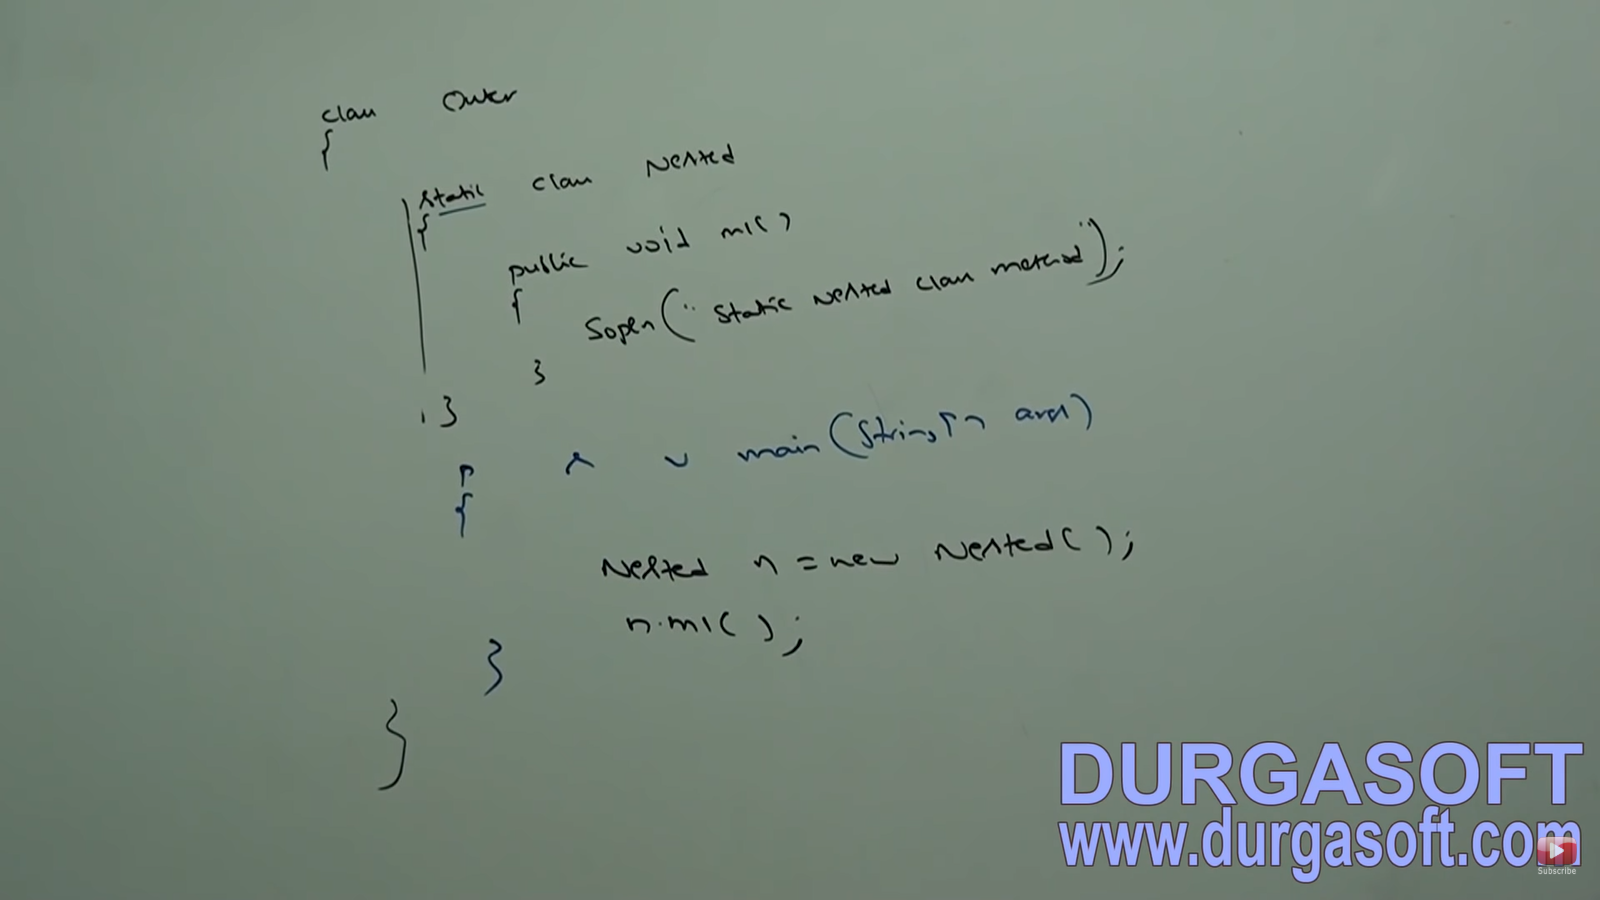 class Outer
{
static class Nested
{
public void m1()
{
Sopln("static nested class method");
}
}
p s v main(String[] args)
{
Nested n = new Nested();
n.m1();
}
}
DURGASOFT
www.durgasoft.com
Subscribe